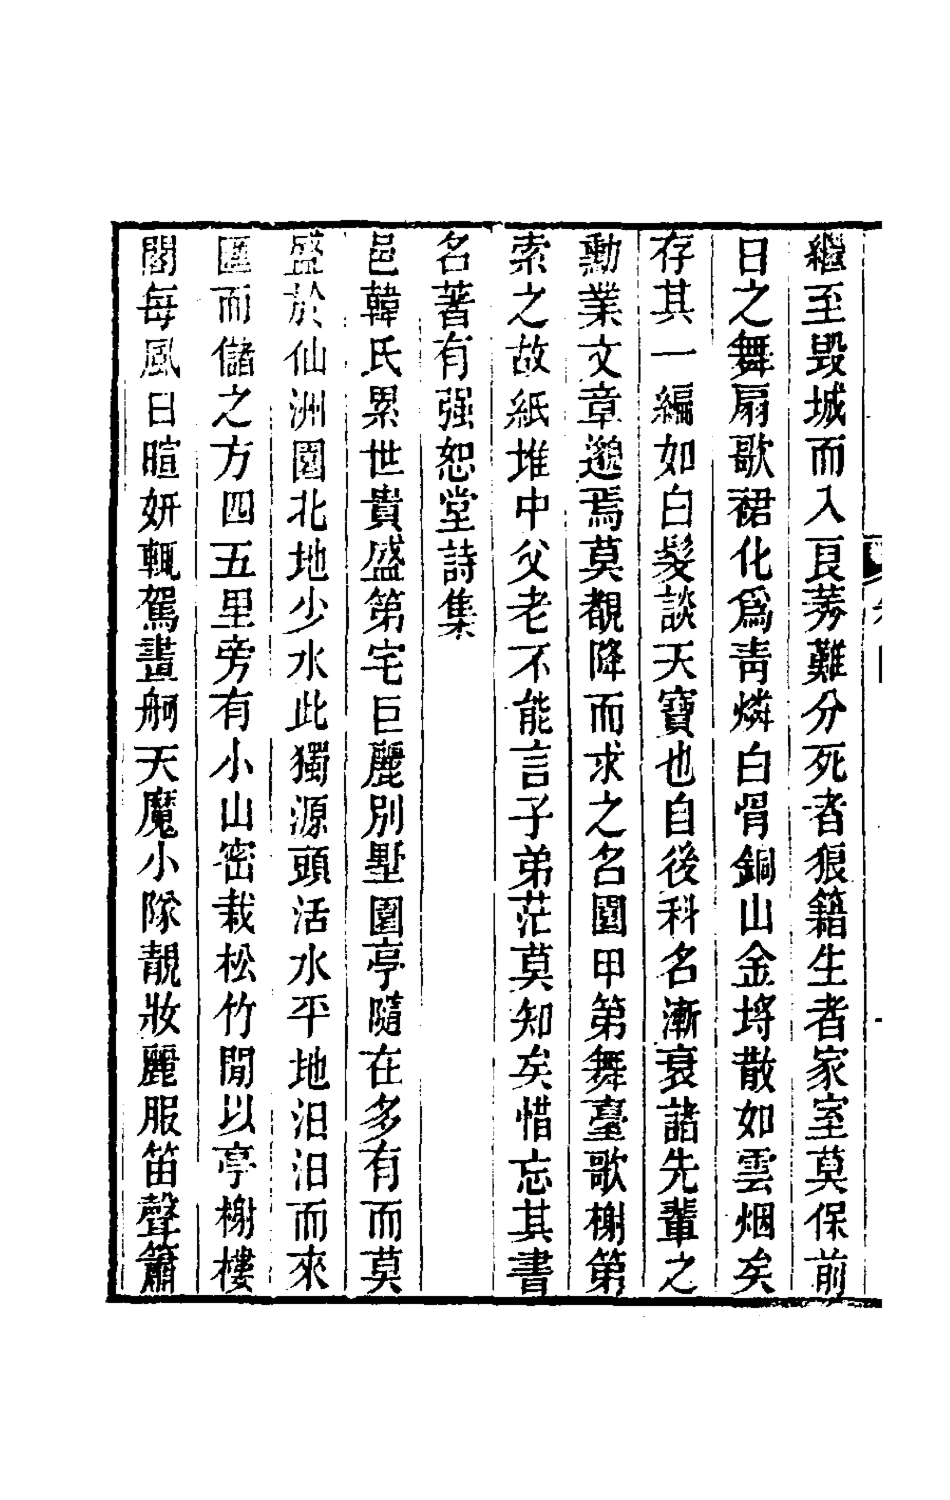 繼至毀城而入良莠難分死者狼籍生者家室莫保前
日之舞扇歌裙化爲靑燐白骨銅山金埒散如雲烟矣
存其一編如白髮談天寶也自後科名漸衰諸先輩之
勳業文章邈焉莫覩降而求之名園甲第舞臺歌榭第
索之故紙堆中父老不能言子弟茫莫知矣惜忘其書
名著有强恕堂詩集
邑韓氏累世貴盛第宅巨麗別墅園亭隨在多有而莫
盛於仙洲園北地少水此獨源頭活水平地汩汩而來
匯而儲之方四五里旁有小山密栽松竹間以亭榭樓
閣每風日暄妍輒駕畫舸天魔小隊靚妝麗服笛聲簫